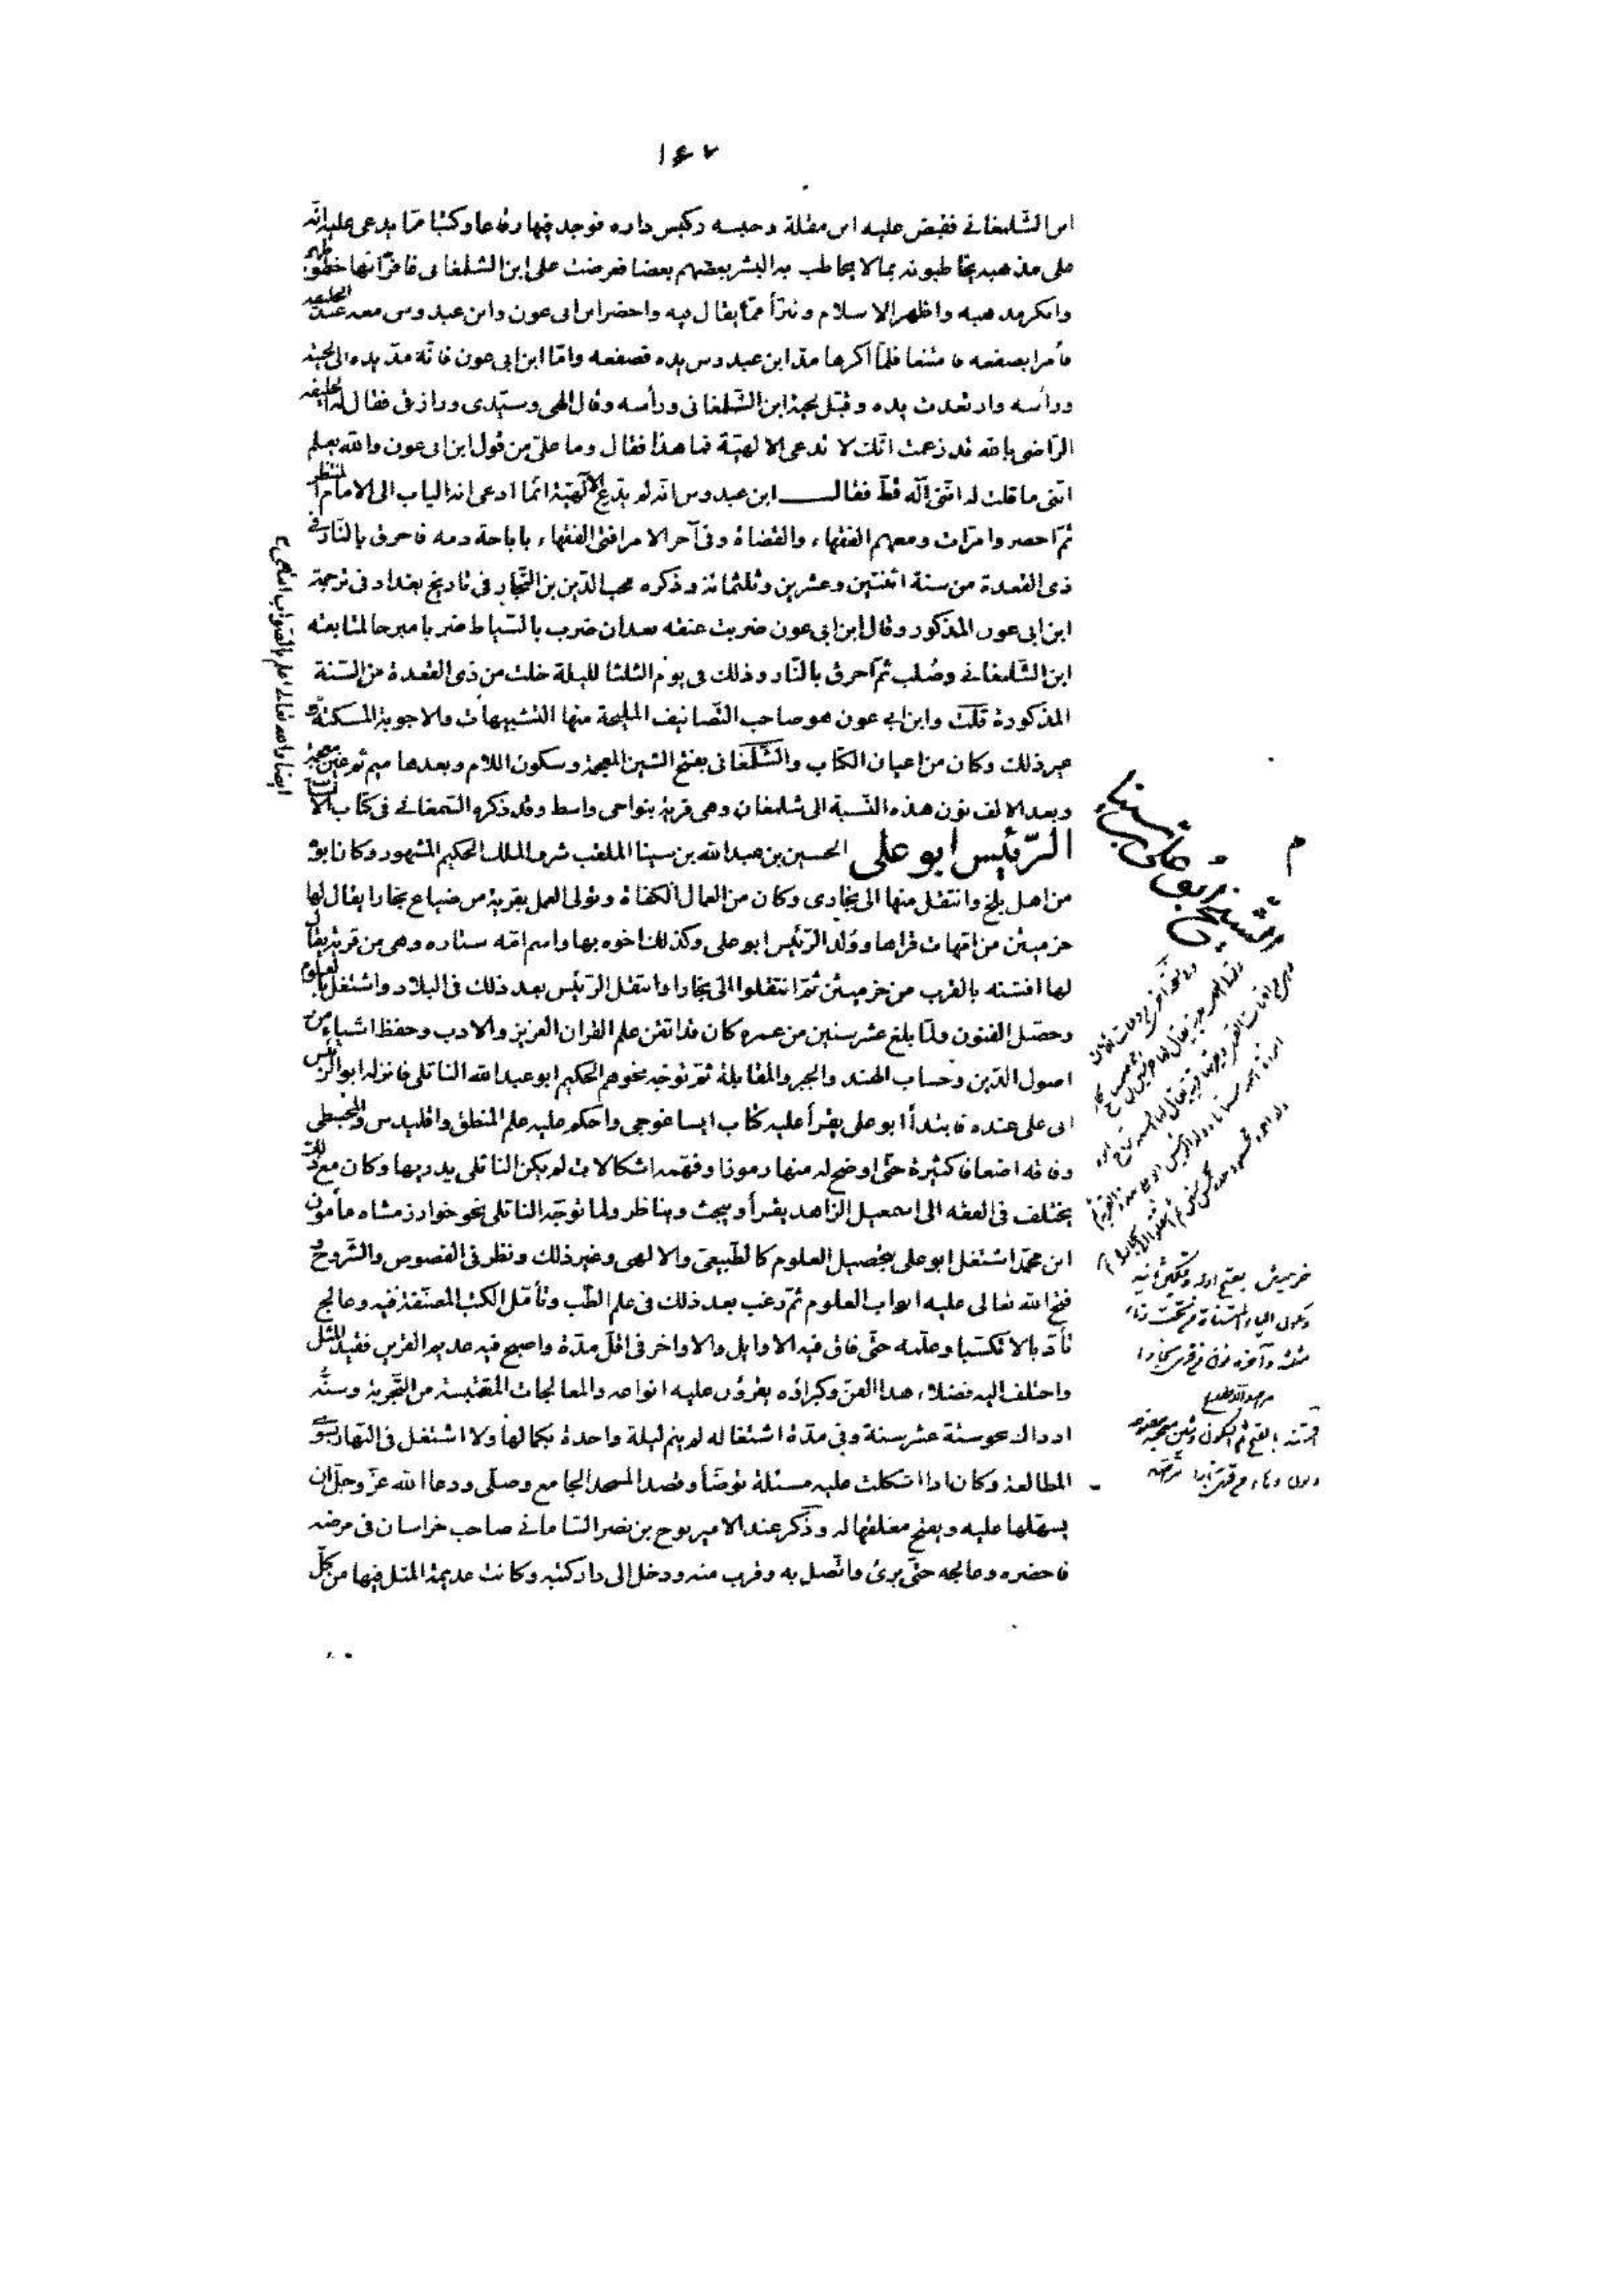 ١٤٧
ابن الشلمغانى فقبض عليه ابن مقلة وحبسه وكبس داره فوجد فيها رقاعا وكتبا ممّا يدعى عليه انّه
على مذهبه يخاطبونه بما لا يخاطب به البشر بعضهم بعضا فعرضت على ابن الشلمغانى فاقرّ انها خطوطهم
وانكر مذهبه واظهر الاسلام وتبرّأ ممّا يقال فيه واحضر ابن ابى عون وابن عبدوس معه عند الخليفة
فأمرا بصفعه فامتنعا فلمّا اكرها مدّ ابن عبدوس يده فصفعه وامّا ابن ابى عون فانّه مدّ يده الى لحيته
ورأسه وارتعدت يده وقبّل لحية ابن الشلمغانى ورأسه وقال الهى وسيّدى ورازقى فقال له الخليفه
الرّاضى بالله قد زعمت انّك لا تدعى الالهيّة فما هذا فقال وما علىّ من قول ابن ابى عون والله يعلم
اننى ما قلت له اننى آله قطّ فقال ابن عبدوس انّه لم يدّع الآلهيّة انّما ادعى انه الباب الى الامام المنتظر
ثمّ احضروا مرّات ومعهم الفقهاء والقضاة وفى آخر الامر افتى الفقهاء باباحة دمه فاحرق بالنّار فى
ذى القعدة من سنة اثنتين وعشرين وثلثمائة وذكره محب الدّين بن النّجار فى تاريخ بغداد فى ترجمة
ابن ابى عون المذكور وقال ابن ابى عون ضربت عنقه بعد ان ضرب بالسّياط ضربا مبرحا لمتابعته
ابن الشّلمغانى وصُلب ثمّ احرق بالنّار وذلك فى يوم الثلثا لليلة خلت من ذى القعدة من السّنة
المذكورة قلت وابن ابى عون هو صاحب التّصانيف المليحة منها التشبيهات والاجوبة المسكتة و
غير ذلك وكان من اعيان الكتّاب والشّلمغانى بفتح الشين المعجمة وسكون اللام وبعدها ميم ثم غين معجمة
وبعد الالف نون هذه النّسبة الى شلمغان وهى قرية بنواحى واسط وقد ذكره السّمعانى فى كتاب الانساب
ايضا والله تعالى اعلم بالصّواب انتهى
الرّئيس ابو على الحسين بن عبد الله بن سينا الملقب شرف الملك الحكيم المشهور وكان ابوه
من اهل بلخ وانتقل منها الى بخارى وكان من العمال الكفاة وتولى العمل بقرية من ضياع بخارا يقال لها
خرميثن من امّهات قراها وولد الرّئيس ابو على وكذلك اخوه بها واسم امّه ستاره وهى من قرية يقال
لها افشنه بالقرب من خرميثن ثمّ انتقلوا الى بخارا وانتقل الرّئيس بعد ذلك فى البلاد واشتغل بالعلوم
وحصّل الفنون ولمّا بلغ عشر سنين من عمره كان قد اتقن علم القران العزيز والادب وحفظ اشياء من
اصول الدّين وحساب الهند والجبر والمقابلة ثمّ توجّه نحوهم الحكيم ابو عبد الله الناتلى فانزله ابو الرّئيس
ابى على عنده فابتدأ ابو على يقرأ عليه كتاب ايساغوجى واحكم عليه علم المنطق واقليدس والمجسطى
وفاقه اضعافا كثيرة حتّى اوضح له منها رموزا وفهّمه اشكالات لم يكن الناتلى يدريها وكان مع ذلك
يختلف فى الفقه الى اسمعيل الزاهد يقرأ ويبحث ويناظر ولما توجّه الناتلى نحو خوارزمشاه مأمون
ابن محمّد اشتغل ابو على بتحصيل العلوم كالطّبيعىّ والالهى وغير ذلك ونظر فى الفصوص والشّروح و
فتح الله تعالى عليه ابواب العلوم ثمّ رغب بعد ذلك فى علم الطّب وتأمّل الكتب المصنّفة فيه وعالج
تأدّبا لا تكسّبا وعلمه حتّى فاق فيه الاوايل والاواخر فى اقلّ مدّة واصبح فيه عديم القرين فقيد المثل
واختلف اليه فضلاء هذا الفنّ وكبراؤه يقرؤن عليه انواعه والمعالجات المقتبسة من التّجربة وسنّه
اذ ذاك نحو ستة عشر سنة وفى مدّة اشتغاله لم ينم ليلة واحدة بكمالها ولا اشتغل فى النّهار بسوى
المطالعة وكان اذا اشكلت عليه مسئلة توضّأ وقصد المسجد الجامع وصلّى ودعا الله عزّ وجلّ ان
يسهّلها عليه ويفتح مغلقها له وذكر عند الامير نوح بن نصر السّامانى صاحب خراسان فى مرضه
فاحضره وعالجه حتّى برئ واتّصل به وقرب منه ودخل الى دار كتبه وكانت عديمة المثل فيها من كلّ
خرميثن بفتح اوله وتسكين ثانيه
وآخره نون من قرى بخارا